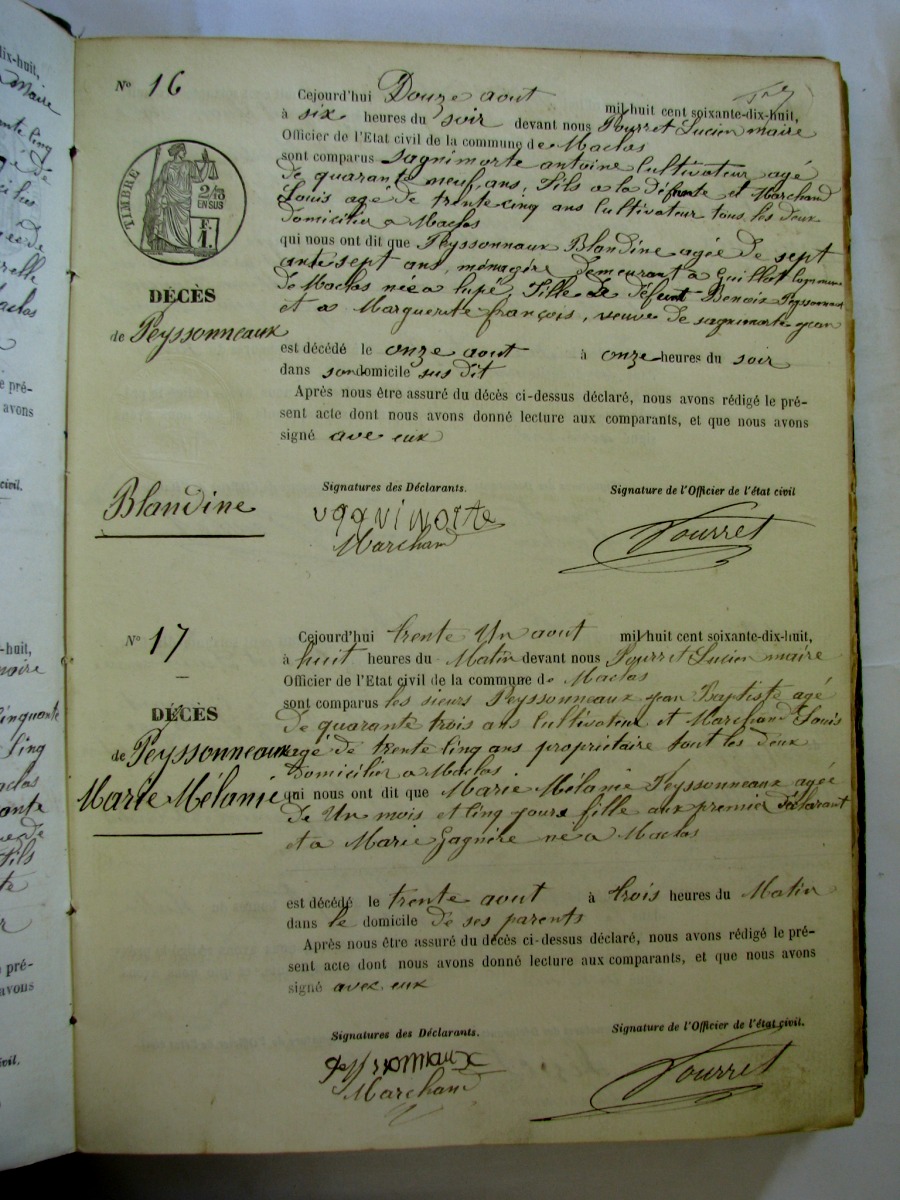 N° 16
Cejourd'hui Douze aout mil huit cent soixante-dix-huit,
à six heures du soir devant nous Pourret Lucien maire
Officier de l'Etat civil de la commune de Maclas
sont comparus sagnimorte antoine Cultivateur agé
de quarante neuf ans, Fils a la défunte et Marchand
Louis agé de trente cinq ans Cultivateur tous les deux
domicilier a Maclas
qui nous ont dit que Peyssonnaux Blandine agée de sept
ante sept ans, ménagère demeurant a Guillot Commune
de Maclas nee a lupé, Fille de défunt Benois Peyssonnaux
et a Marguerite françois, veuve de sagnimorte jean
est décédé le onze aout à onze heures du soir
dans son domicile sus dit
Après nous être assuré du décès ci-dessus déclaré, nous avons rédigé le pré-
sent acte dont nous avons donné lecture aux comparants, et que nous avons
signé ave eux
TIMBRE
2/10
EN SUS
F.
1.
DÉCÈS
de Peyssonneaux
Blandine
Signatures des Déclarants.
Signature de l'Officier de l'état civil
Marchand
Pourret
N° 17
Cejourd'hui trente Un aout mil huit cent soixante-dix-huit,
à huit heures du Matin devant nous Pourret Lucien maire
Officier de l'Etat civil de la commune de Maclas
sont comparus les sieurs Peyssonneaux jean Baptiste agé
de quarante trois ans Cultivateur et Marchand Louis
agé de trente Cinq ans propriétaire tout les deux
domicilier a Maclas
qui nous ont dit que Marie Mélanie Peyssonneaux agée
de Un mois et Cinq jours fille aux premier déclarant
et a Marie Gagnère né a Maclas
est décédé le trente aout à trois heures du Matin
dans le domicile de ses parents
Après nous être assuré du décès ci-dessus déclaré, nous avons rédigé le pré-
sent acte dont nous avons donné lecture aux comparants, et que nous avons
signé avec eux
DÉCÈS
de Peyssonneaux
Marie Mélanie
Signatures des Déclarants.
Signature de l'Officier de l'état civil.
Marchand
Pourret